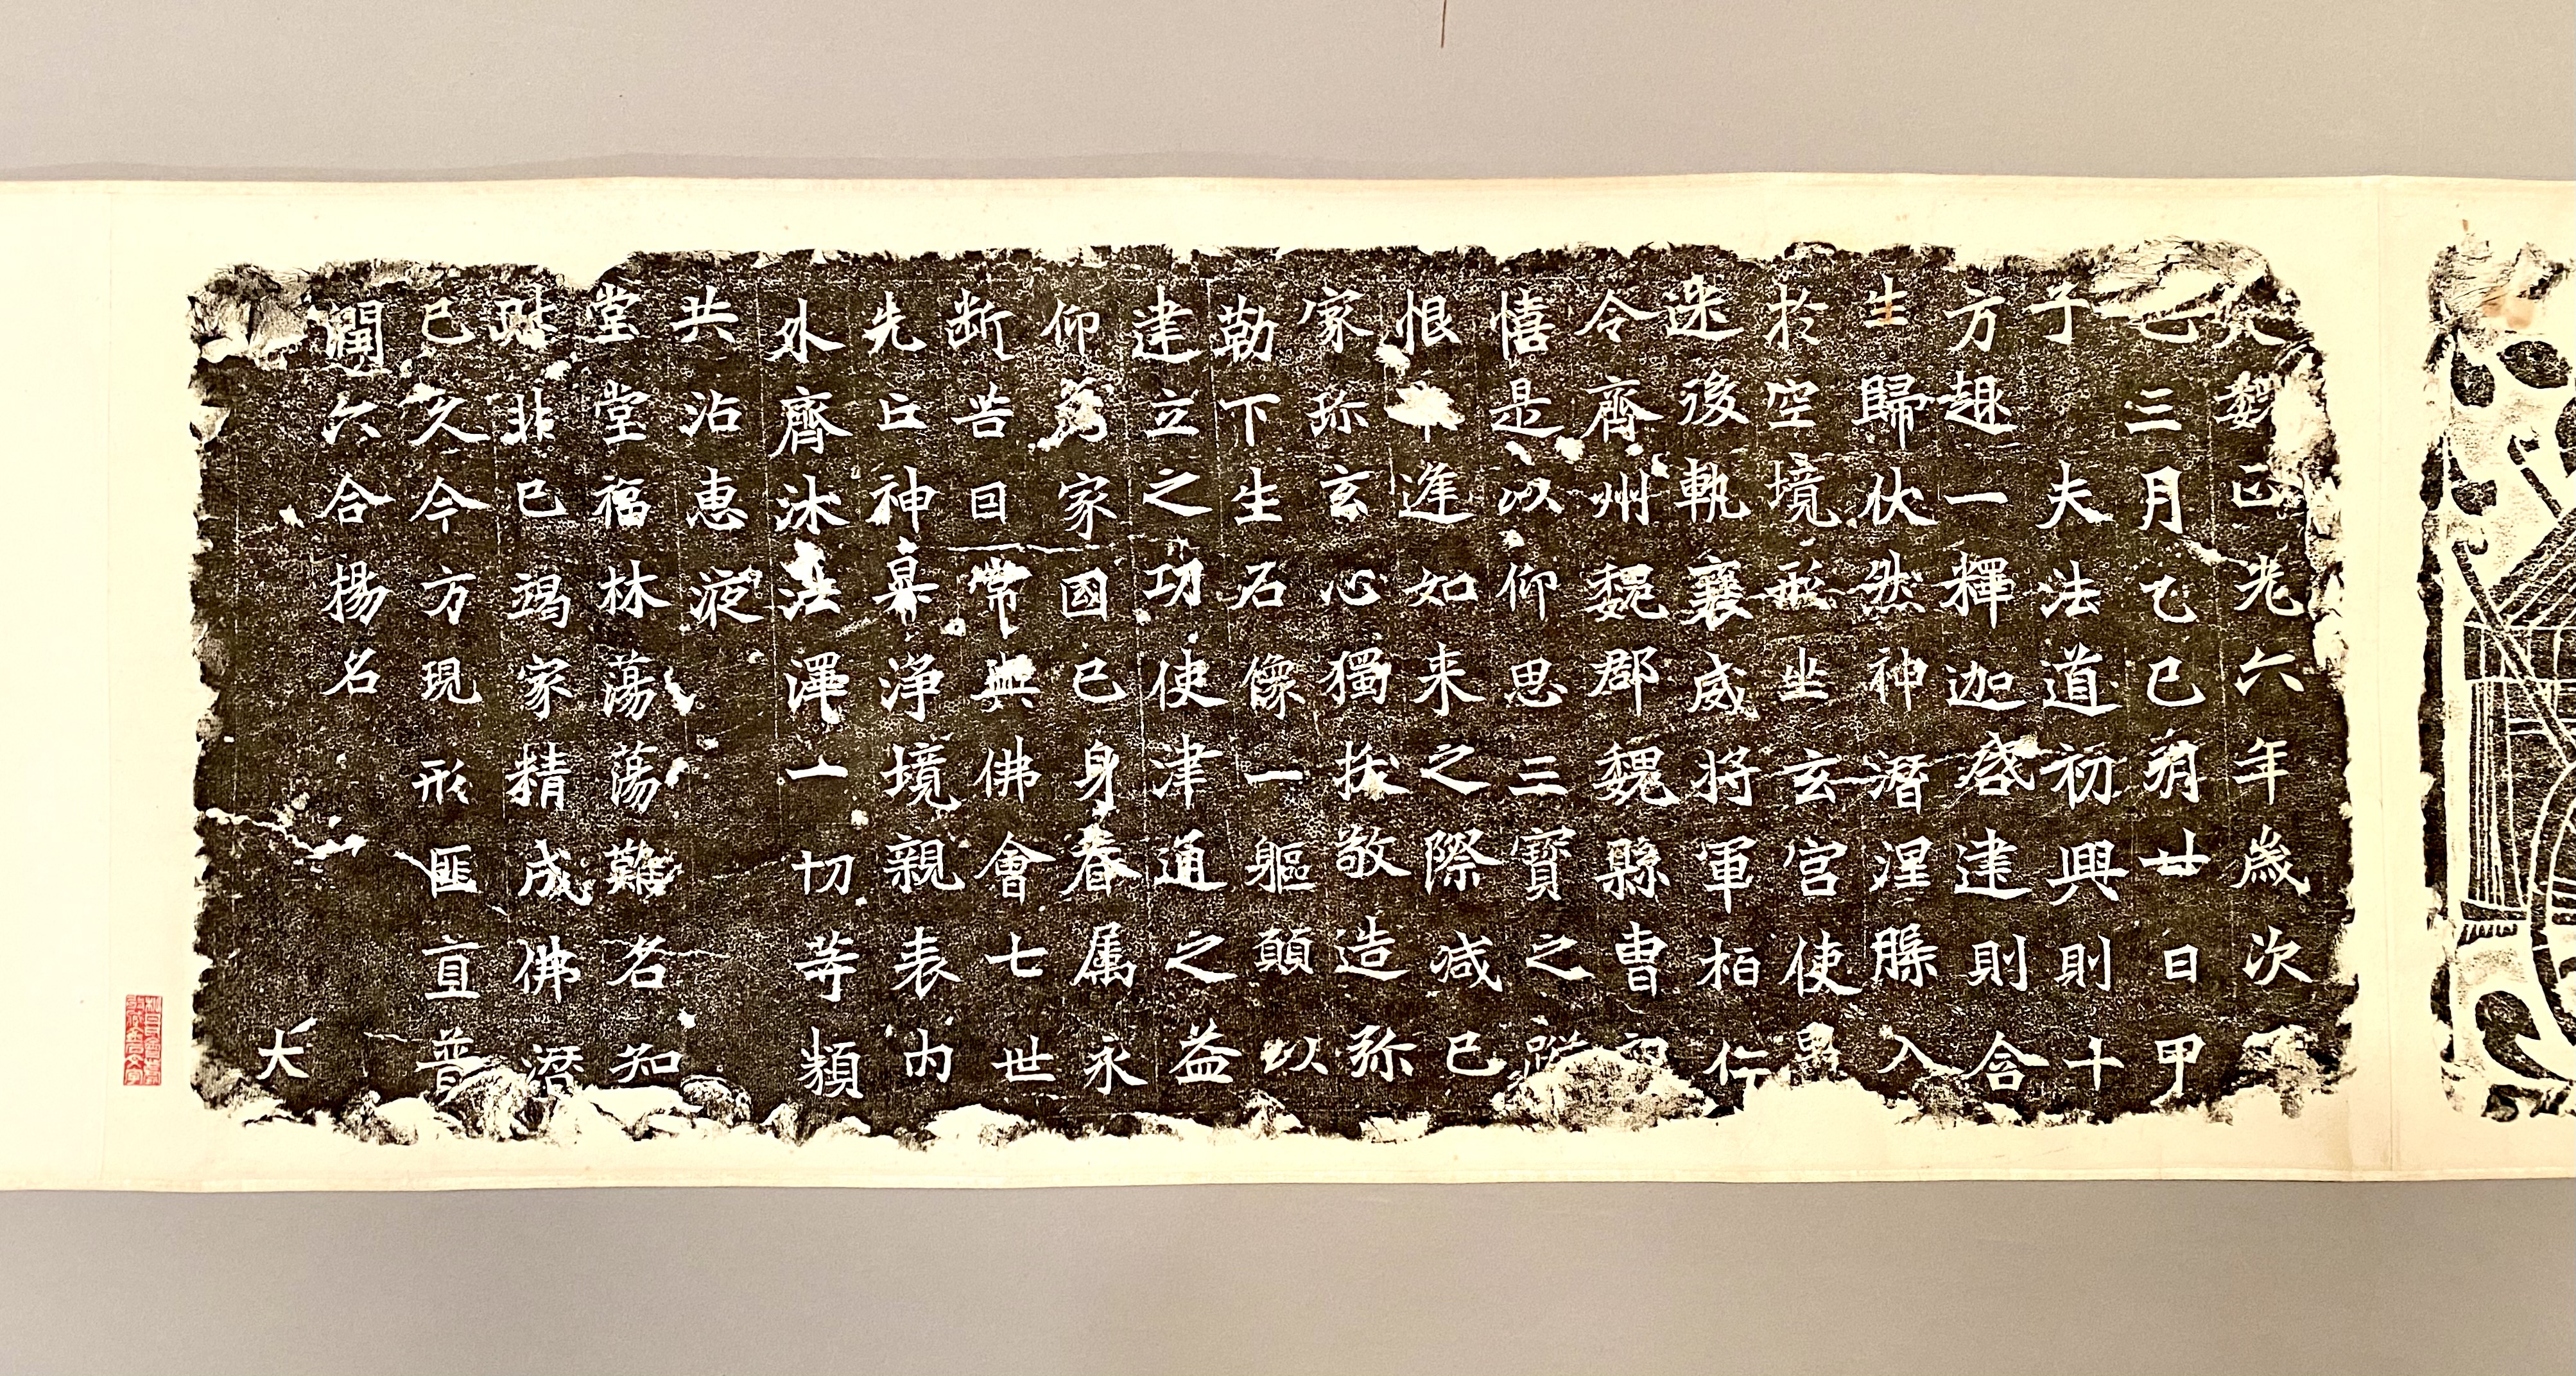 大魏正光六年歲次
乙巳三月乙巳朔廿日甲
子 夫法道初興則十
方趄一釋迦啓建則含
生歸伏然神潛涅槃入
於空境形坐玄宮使愚
迷後軌襄威將軍柏仁
令齊州魏郡魏縣曹
憘是以仰思三寶之蹤
恨未逢如来之際減己
家珎玄心獨拔敬造弥
勒下生石像一軀願以
建立之功使津通之益
仰為家國己身眷属永
断苦因常與佛會七世
先亡神昇浄境親表内
外齊沐法澤一切等類
共沾惠液
堂堂福林蕩蕩難名知
財非己竭家精成佛潛
已久今方現形匪直普
潤六合揚名
大